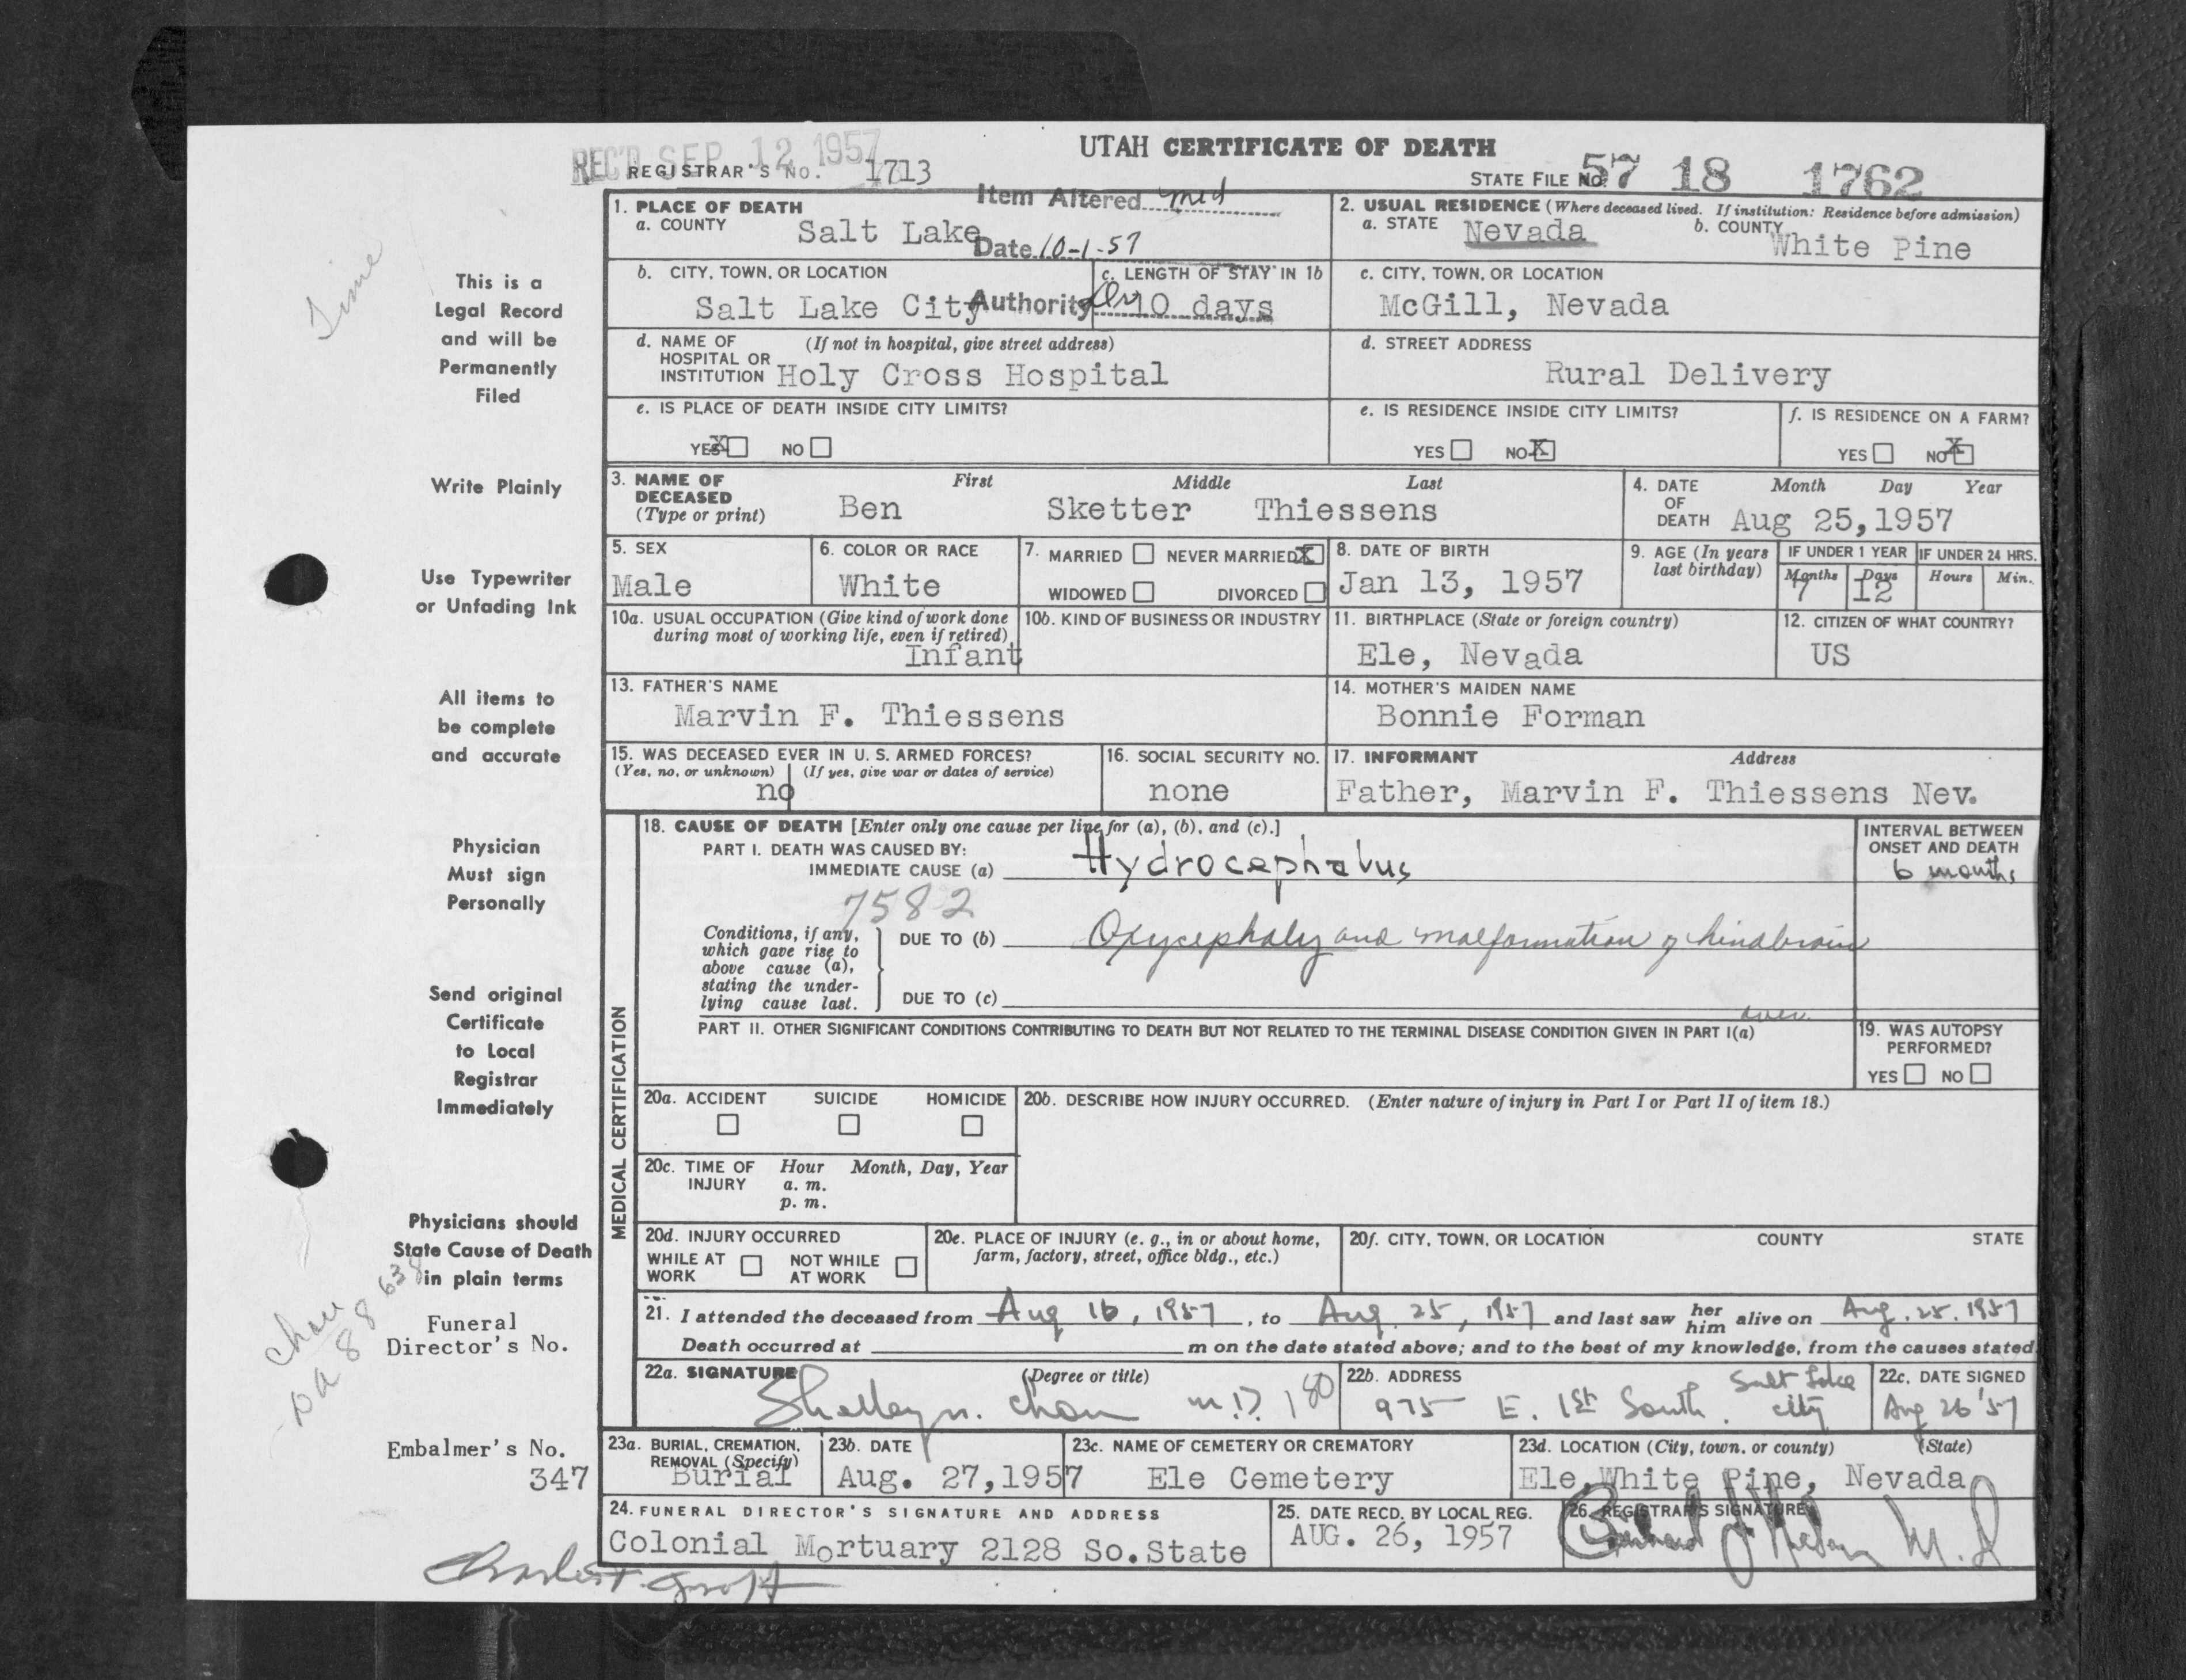 UTAH CERTIFICATE OF DEATH
REC'D SEP 12 1957
REGISTRAR'S NO. 1713
STATE FILE NO. 57 18 1762
Item Altered med
Date 10-1-57
Authority
1. PLACE OF DEATH
a. COUNTY Salt Lake
b. CITY, TOWN, OR LOCATION
Salt Lake City
c. LENGTH OF STAY IN 1b
10 days
d. NAME OF HOSPITAL OR INSTITUTION (If not in hospital, give street address)
Holy Cross Hospital
e. IS PLACE OF DEATH INSIDE CITY LIMITS?
YES X NO
2. USUAL RESIDENCE (Where deceased lived. If institution: Residence before admission)
a. STATE Nevada
b. COUNTY White Pine
c. CITY, TOWN, OR LOCATION
McGill, Nevada
d. STREET ADDRESS
Rural Delivery
e. IS RESIDENCE INSIDE CITY LIMITS?
YES NO X
f. IS RESIDENCE ON A FARM?
YES NO X
3. NAME OF DECEASED (Type or print)
First Middle Last
Ben Sketter Thiessens
4. DATE OF DEATH Month Day Year
Aug 25, 1957
5. SEX
Male
6. COLOR OR RACE
White
7. MARRIED NEVER MARRIED X
WIDOWED DIVORCED
8. DATE OF BIRTH
Jan 13, 1957
9. AGE (In years last birthday)
IF UNDER 1 YEAR IF UNDER 24 HRS.
Months Days Hours Min.
7 12
10a. USUAL OCCUPATION (Give kind of work done during most of working life, even if retired)
Infant
10b. KIND OF BUSINESS OR INDUSTRY
11. BIRTHPLACE (State or foreign country)
Ele, Nevada
12. CITIZEN OF WHAT COUNTRY?
US
13. FATHER'S NAME
Marvin F. Thiessens
14. MOTHER'S MAIDEN NAME
Bonnie Forman
15. WAS DECEASED EVER IN U. S. ARMED FORCES?
(Yes, no, or unknown) (If yes, give war or dates of service)
no
16. SOCIAL SECURITY NO.
none
17. INFORMANT Address
Father, Marvin F. Thiessens Nev.
MEDICAL CERTIFICATION
18. CAUSE OF DEATH [Enter only one cause per line for (a), (b), and (c).]
PART I. DEATH WAS CAUSED BY:
IMMEDIATE CAUSE (a) Hydrocephalus
INTERVAL BETWEEN ONSET AND DEATH
6 months
7582
Conditions, if any, which gave rise to above cause (a), stating the underlying cause last.
DUE TO (b) Oxycephaly and malformation of hindbrain
DUE TO (c)
over
PART II. OTHER SIGNIFICANT CONDITIONS CONTRIBUTING TO DEATH BUT NOT RELATED TO THE TERMINAL DISEASE CONDITION GIVEN IN PART I(a)
19. WAS AUTOPSY PERFORMED?
YES NO
20a. ACCIDENT SUICIDE HOMICIDE
20b. DESCRIBE HOW INJURY OCCURRED. (Enter nature of injury in Part I or Part II of item 18.)
20c. TIME OF INJURY Hour Month, Day, Year
a. m.
p. m.
20d. INJURY OCCURRED
WHILE AT WORK NOT WHILE AT WORK
20e. PLACE OF INJURY (e. g., in or about home, farm, factory, street, office bldg., etc.)
20f. CITY, TOWN, OR LOCATION COUNTY STATE
21. I attended the deceased from Aug 16, 1957, to Aug. 25, 1957 and last saw her him alive on Aug. 25, 1957
Death occurred at m on the date stated above; and to the best of my knowledge, from the causes stated
22a. SIGNATURE (Degree or title)
Shelley n. Chou M.D. 180
22b. ADDRESS
975 E. 1st South. Salt Lake City
22c. DATE SIGNED
Aug 26 '57
23a. BURIAL, CREMATION, REMOVAL (Specify)
Burial
23b. DATE
Aug. 27, 1957
23c. NAME OF CEMETERY OR CREMATORY
Ele Cemetery
23d. LOCATION (City, town, or county) (State)
Ele, White Pine, Nevada
24. FUNERAL DIRECTOR'S SIGNATURE AND ADDRESS
Colonial Mortuary 2128 So. State
25. DATE RECD. BY LOCAL REG.
AUG. 26, 1957
26. REGISTRAR'S SIGNATURE
M.D.
Time
This is a
Legal Record
and will be
Permanently
Filed
Write Plainly
Use Typewriter
or Unfading Ink
All items to
be complete
and accurate
Physician
Must sign
Personally
Send original
Certificate
to Local
Registrar
Immediately
Physicians should
State Cause of Death
in plain terms
Chou
DA 8 8 8 638
Funeral
Director's No.
Embalmer's No.
347